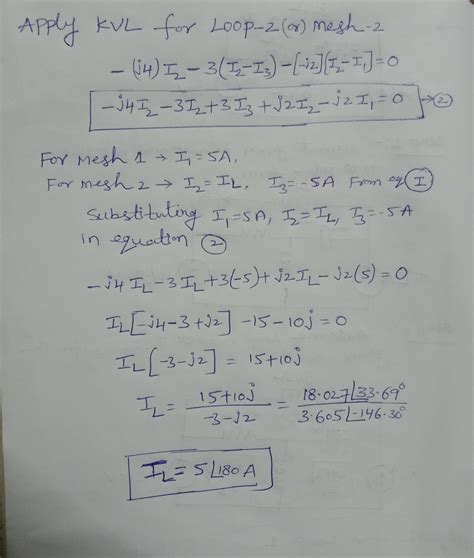 Apply KVL for Loop-2 (or) mesh-2
-(j4)I₂-3(I₂-I₃)-[-j2][I₂-I₁]=0
-j4I₂-3I₂+3I₃+j2I₂-j2I₁=0 → ②
For mesh 1 → I₁=5A,
For mesh 2 → I₂=I_L, I₃=-5A From eq Ⓘ
Substituting I₁=5A, I₂=I_L, I₃=-5A
in equation ②
-j4 I_L-3I_L+3(-5)+j2I_L-j2(5)=0
I_L[-j4-3+j2] -15-10j=0
I_L[-3-j2] = 15+10j
I_L = 15+10j / -3-j2 = 18.027∠33.69° / 3.605∠-146.30°
I_L = 5∠180 A